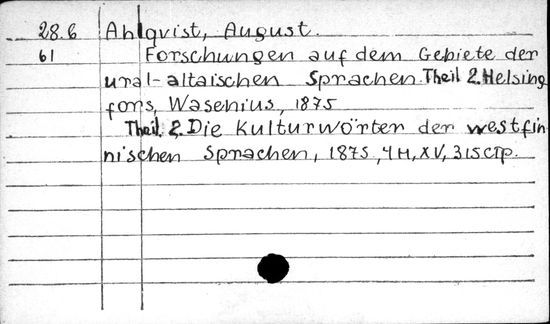 28.6 Ahlqvist, August.
61 Forschungen auf dem Gebiete der
ural-altaischen Sprachen. Theil 2. Helsing
fors, Wasenius, 1875
Theil. 2. Die Kulturwörter der westfin
nischen Sprachen, 1875, 4H, XV, 315 стр.